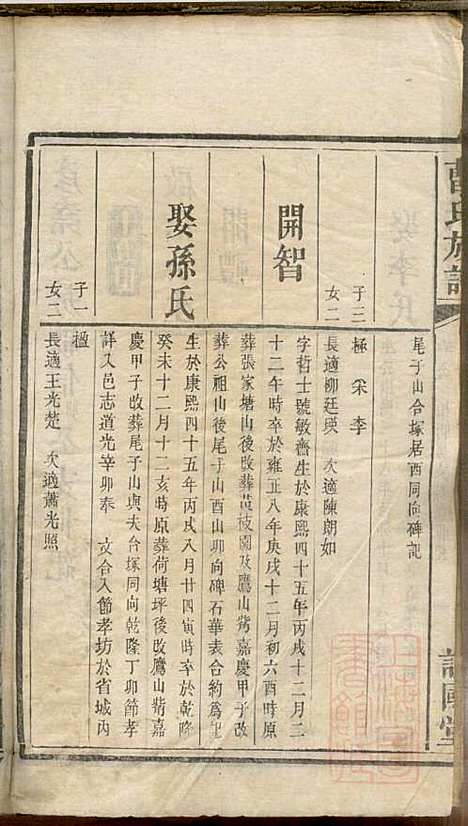 曹氏族譜
尾子山合塚居西同向碑記
子三 極 采 李
女二 長適柳廷瑛 次適陳朗如
開智
字哲士號敏齋生於康熙四十五年丙戌十二月二
十二午時卒於雍正八年庚戌十二月初六酉時原
葬張家塘山後改葬黃枝園及鷹山觜嘉慶甲子改
葬公祖山後尾子山酉山卯向碑石華表合約爲記
娶孫氏
生於康熙四十五年丙戌八月廿四寅時卒於乾隆
癸未十二月十二亥時原葬荷塘坪後改鷹山觜嘉
慶甲子改葬尾子山與夫合塚同向乾隆丁卯節孝
詳入邑志道光辛卯奉 文合入節孝坊於省城內
子一 楹
女二 長適王光楚 次適蕭光照